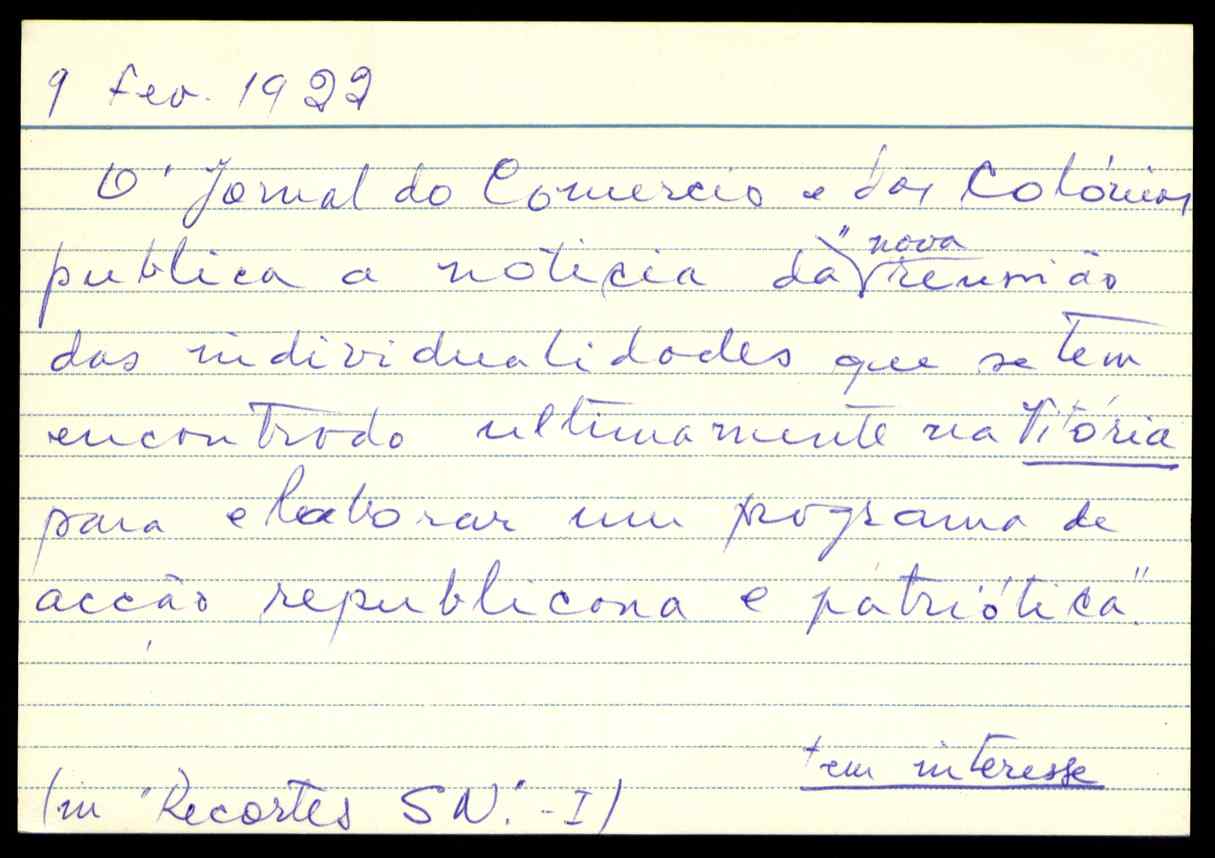 9 Fev. 1922
O "Jornal do Comercio e das Colónias
publica a noticia da "nova reunião
das individualidades que se tem
encontrado ultimamente na Vitória
para elaborar um programa de
acção republicana e patriótica".
tem interesse
(in "Recortes SN". - I)